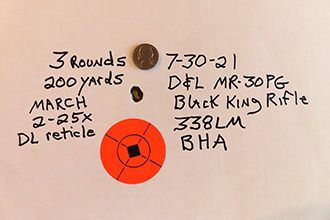 3 ROUNDS
200 YARDS
MARCH
2-25X
DL reticle
7-30-21
D&L MR-30PG
Black King Rifle
338LM
BHA